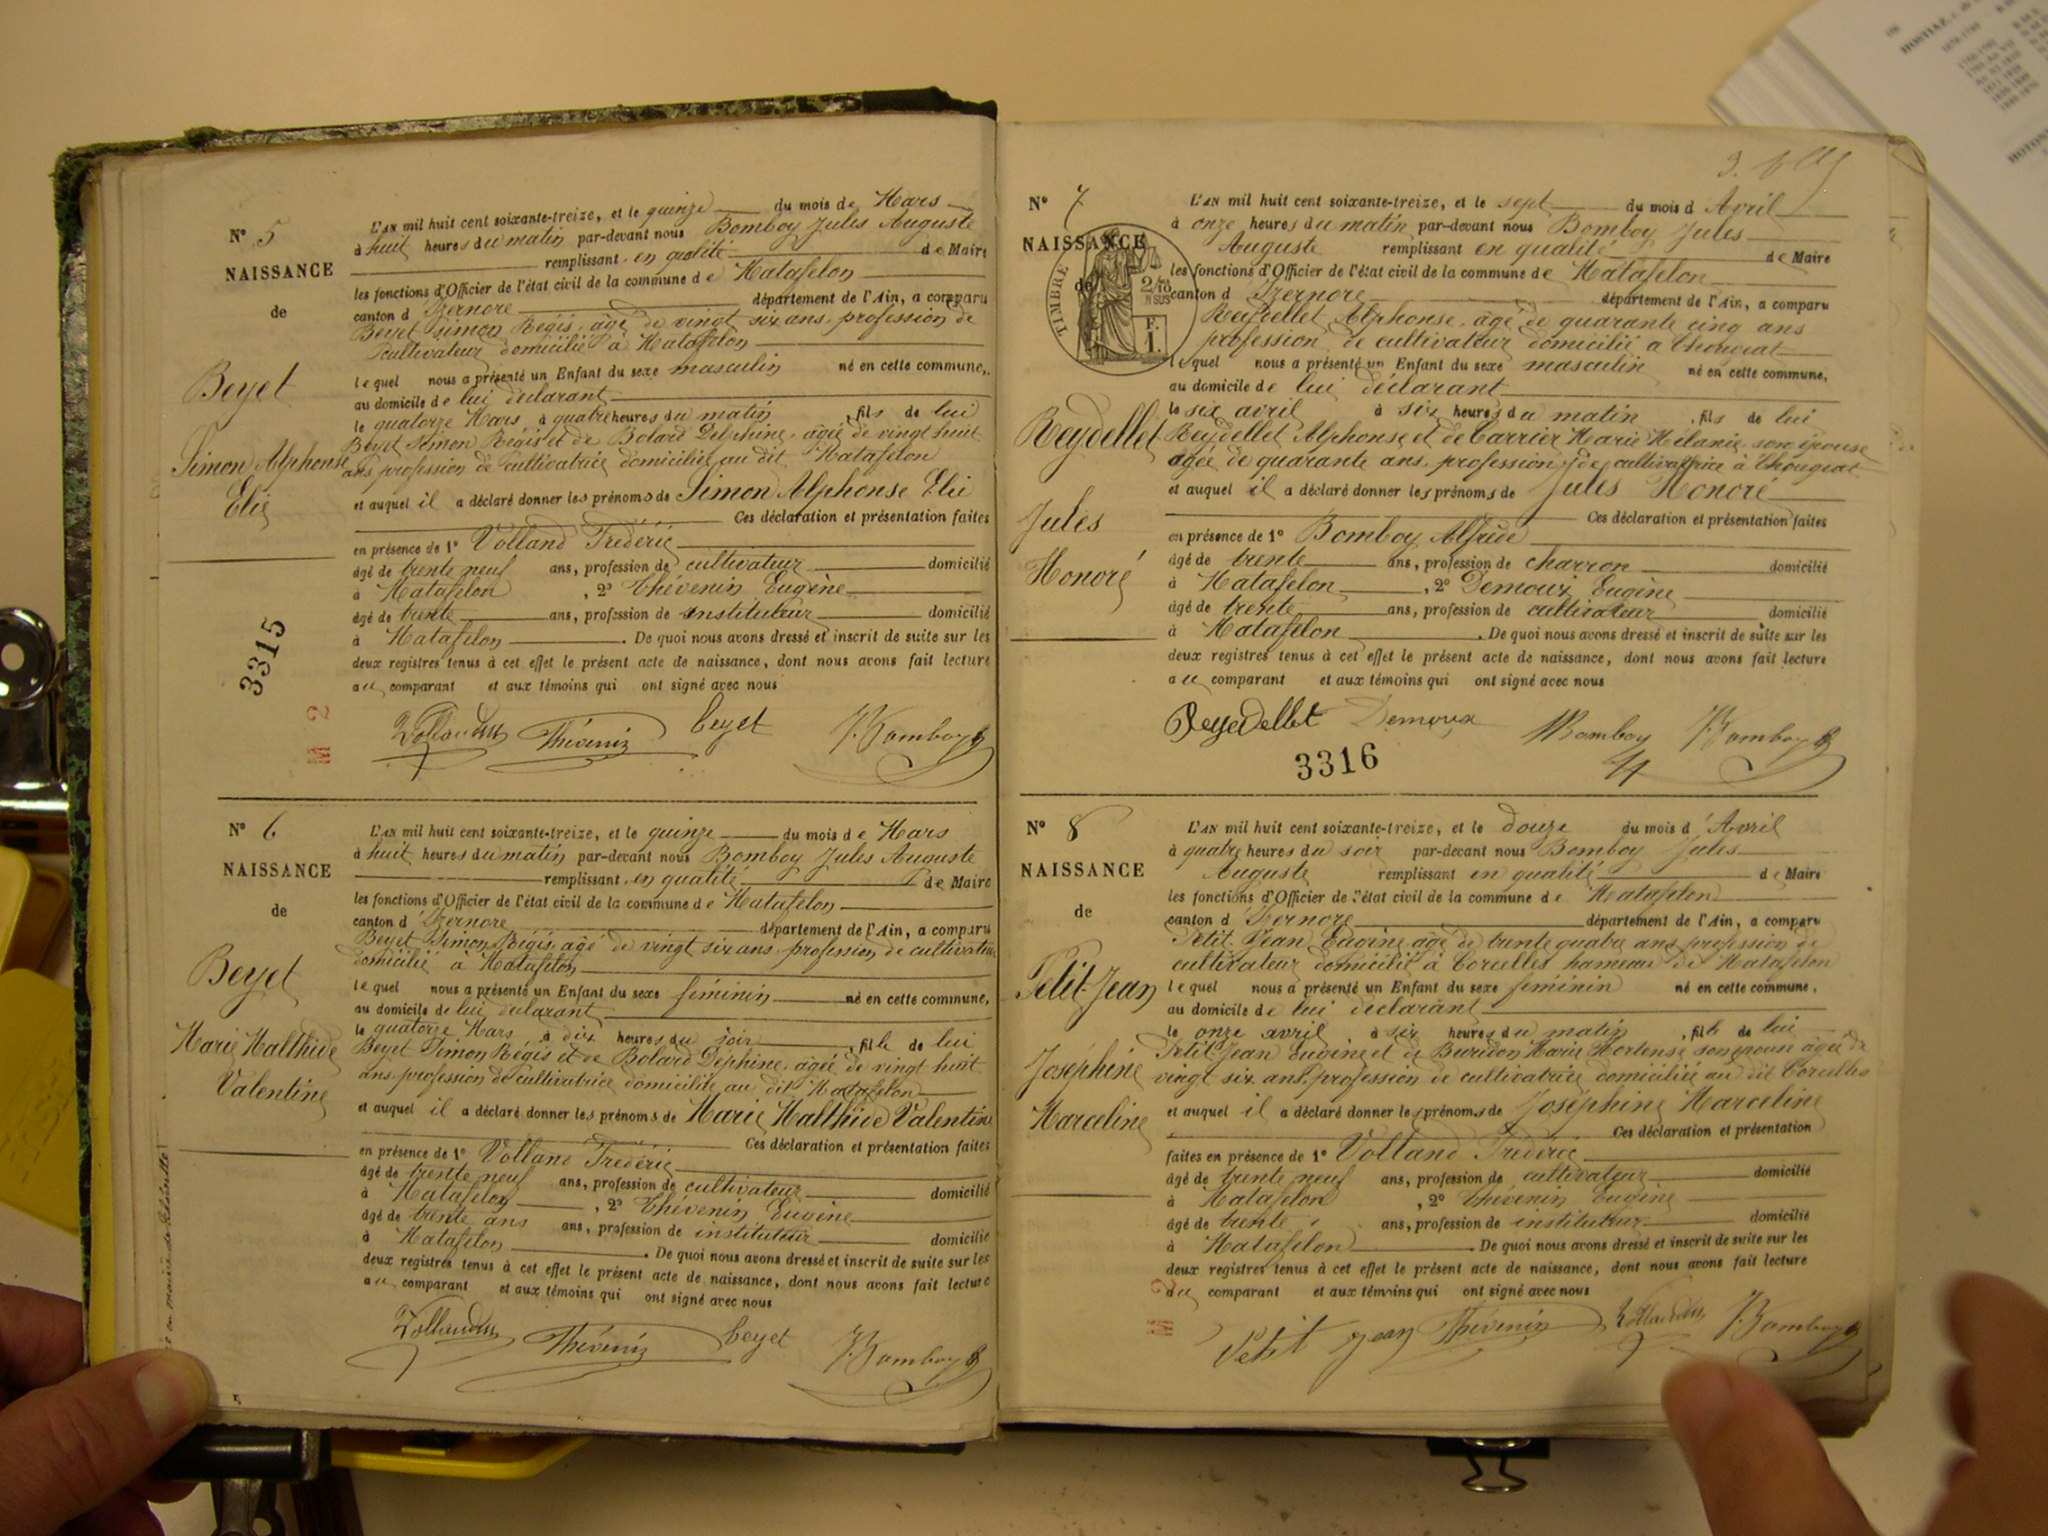 N° 5
NAISSANCE
de
Beyet
Simon Alphonse
Elie
3315
L'AN mil huit cent soixante-treize, et le quinze du mois de Mars
à huit heures du matin par-devant nous Bomboy Jules Auguste
remplissant en qualité de Maire
les fonctions d'Officier de l'état civil de la commune de Matafelon
canton d'Izernore département de l'Ain, a comparu
Beyet Simon Régis, âgé de vingt six ans, profession de
cultivateur domicilié à Matafelon
lequel nous a présenté un Enfant du sexe masculin né en cette commune,
au domicile de lui déclarant
le quatorze Mars à quatre heures du matin, fils de lui
Beyet Simon Régis et de Bolard Delphine, agée de vingt huit
ans, profession de cultivatrice domiciliée au dit Matafelon
et auquel il a déclaré donner les prénoms de Simon Alphonse Elie
Ces déclaration et présentation faites
en présence de 1° Volland Frédéric
âgé de trente neuf ans, profession de cultivateur domicilié
à Matafelon, 2° Thévenin Eugène
âgé de trente ans, profession de instituteur domicilié
à Matafelon. De quoi nous avons dressé et inscrit de suite sur les
deux registres tenus à cet effet le présent acte de naissance, dont nous avons fait lecture
au comparant et aux témoins qui ont signé avec nous
Volland Thévenin beyet J. Bomboy
N° 6
NAISSANCE
de
Beyet
Marie Malthide
Valentine
L'AN mil huit cent soixante-treize, et le quinze du mois de Mars
à huit heures du matin par-devant nous Bomboy Jules Auguste
remplissant en qualité de Maire
les fonctions d'Officier de l'état civil de la commune de Matafelon
canton d'Izernore département de l'Ain, a comparu
Beyet Simon Régis, agé de vingt six ans, profession de cultivateur
domicilié à Matafelon
lequel nous a présenté un Enfant du sexe féminin né en cette commune,
au domicile de lui déclarant
le quatorze Mars à dix heures du soir, fille de lui
Beyet Simon Régis et de Bolard Dephine, agée de vingt huit
ans, profession de cultivatrice domiciliée au dit Matafelon
et auquel il a déclaré donner les prénoms de Marie Malthide Valentine
Ces déclaration et présentation faites
en présence de 1° Volland Frédéric
âgé de trente neuf ans, profession de cultivateur domicilié
à Matafelon, 2° Thévenin Eugène
âgé de trente ans ans, profession de instituteur domicilié
à Matafelon. De quoi nous avons dressé et inscrit de suite sur les
deux registres tenus à cet effet le présent acte de naissance, dont nous avons fait lecture
au comparant et aux témoins qui ont signé avec nous
Volland Thévenin beyet J. Bomboy
N° 7
NAISSANCE
de
TIMBRE
2/10 EN SUS
F. 1.
Reydellet
Jules
Honoré
L'AN mil huit cent soixante-treize, et le sept du mois d'Avril
à onze heures du matin par-devant nous Bomboy Jules
Auguste remplissant en qualité de Maire
les fonctions d'Officier de l'état civil de la commune de Matafelon
canton d'Izernore département de l'Ain, a comparu
Reydellet Alphonse, âgé de quarante cinq ans
profession de cultivateur domicilié à Chougeat
lequel nous a présenté un Enfant du sexe masculin né en cette commune,
au domicile de lui déclarant
le six avril à six heures du matin, fils de lui
Reydellet Alphonse et de Carrier Marie Mélanie, son épouse
agée de quarante ans, profession de cultivatrice à Chougeat
et auquel il a déclaré donner les prénoms de Jules Honoré
Ces déclaration et présentation faites
en présence de 1° Bomboy Alfrède
âgé de trente ans, profession de charron domicilié
à Matafelon, 2° Demoux Eugène
âgé de trente ans, profession de cultivateur domicilié
à Matafelon. De quoi nous avons dressé et inscrit de suite sur les
deux registres tenus à cet effet le présent acte de naissance, dont nous avons fait lecture
au comparant et aux témoins qui ont signé avec nous
Reyedellet Demoux Bomboy J. Bomboy
3316
N° 8
NAISSANCE
de
Petit-Jean
Joséphine
Marceline
L'AN mil huit cent soixante-treize, et le douze du mois d'Avril
à quatre heures du soir par-devant nous Bomboy Jules
Auguste remplissant en qualité de Maire
les fonctions d'Officier de l'état civil de la commune de Matafelon
canton d'Izernore département de l'Ain, a comparu
Petit Jean Eugène, âgé de trente quatre ans, profession de
cultivateur domicilié à Corcelles hameau de Matafelon
lequel nous a présenté un Enfant du sexe féminin né en cette commune,
au domicile de lui déclarant
le onze avril à six heures du matin, fille de lui
Petit-Jean Eugène et de Buridon Marie Hortense son épouse agée de
vingt six ans, profession de cultivatrice domiciliée au dit Corcelles
et auquel il a déclaré donner les prénoms de Joséphine Marceline
Ces déclaration et présentation
faites en présence de 1° Volland Frédéric
âgé de trente neuf ans, profession de cultivateur domicilié
à Matafelon, 2° Thévenin Eugène
âgé de trente ans, profession de instituteur domicilié
à Matafelon. De quoi nous avons dressé et inscrit de suite sur les
deux registres tenus à cet effet le présent acte de naissance, dont nous avons fait lecture
au comparant et aux témoins qui ont signé avec nous
Petit jean Thévenin Volland J. Bomboy